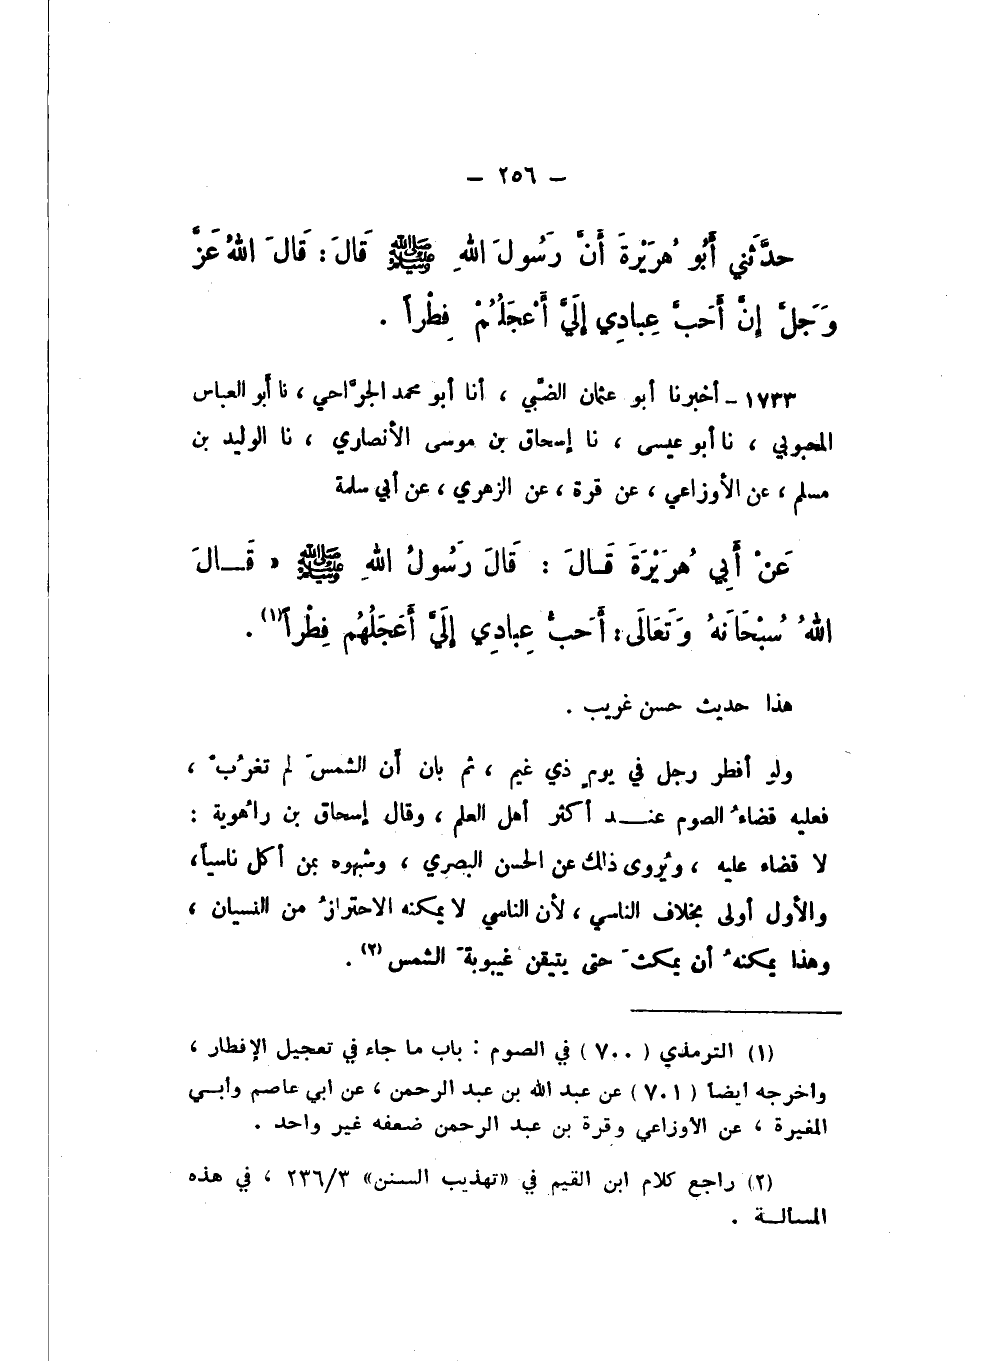 – ٢٥٦ –
حدَّثَني أَبُو هُرَيْرةَ أَنَّ رَسُولَ اللهِ ﷺ قَالَ : قَالَ اللهُ عَزَّ
وَجَلَّ إِنَّ أَحَبَّ عِبادِي إِلَيَّ أَعْجَلُهُمْ فِطْراً .
١٧٣٣ – أخبرنا أبو عثمان الضبّي ، أنا أبو محمد الجرَّاحي ، نا أبو العباس
المحبوبي ، نا أبو عيسى ، نا إسحاق بن موسى الأنصاري ، نا الوليد بن
مسلم ، عن الأوزاعي ، عن قرة ، عن الزهري ، عن أبي سلمة
عَنْ أَبِي هُرَيْرَةَ قَـالَ : قَالَ رَسُولُ اللهِ ﷺ « قَـــالَ
اللهُ سُبْحَانَهُ وَتَعَالَى : أَحَبُّ عِبادِي إِلَيَّ أَعَجَلُهُم فِطْراً(١) .
هذا حديث حسن غريب .
ولو أفطر رجل في يومٍ ذي غيم ، ثم بان أن الشمسَ لم تغرُبْ ،
فعليه قضاءُ الصوم عنـــد أكثر أهل العلم ، وقال إسحاق بن راهُوية :
لا قضاء عليه ، ويُروى ذلك عن الحسن البصري ، وشبهوه بمن أكل ناسياً ،
والأول أولى بخلاف الناسي ، لأن الناسي لا يمكنه الاحترازُ من النسيان ،
وهذا يمكنهُ أن يمكثَ حتى يتيقن غيبوبةَ الشمس (٢) .
(١) الترمذي ( ٧٠٠ ) في الصوم : باب ما جاء في تعجيل الإفطار ،
واخرجه ايضا ( ٧٠١ ) عن عبد الله بن عبد الرحمن ، عن ابي عاصم وابــي
المغيرة ، عن الاوزاعي وقرة بن عبد الرحمن ضعفه غير واحد .
(٢) راجع كلام ابن القيم في «تهذيب السنن» ٢٣٦/٣ ، في هذه
المسالــة .